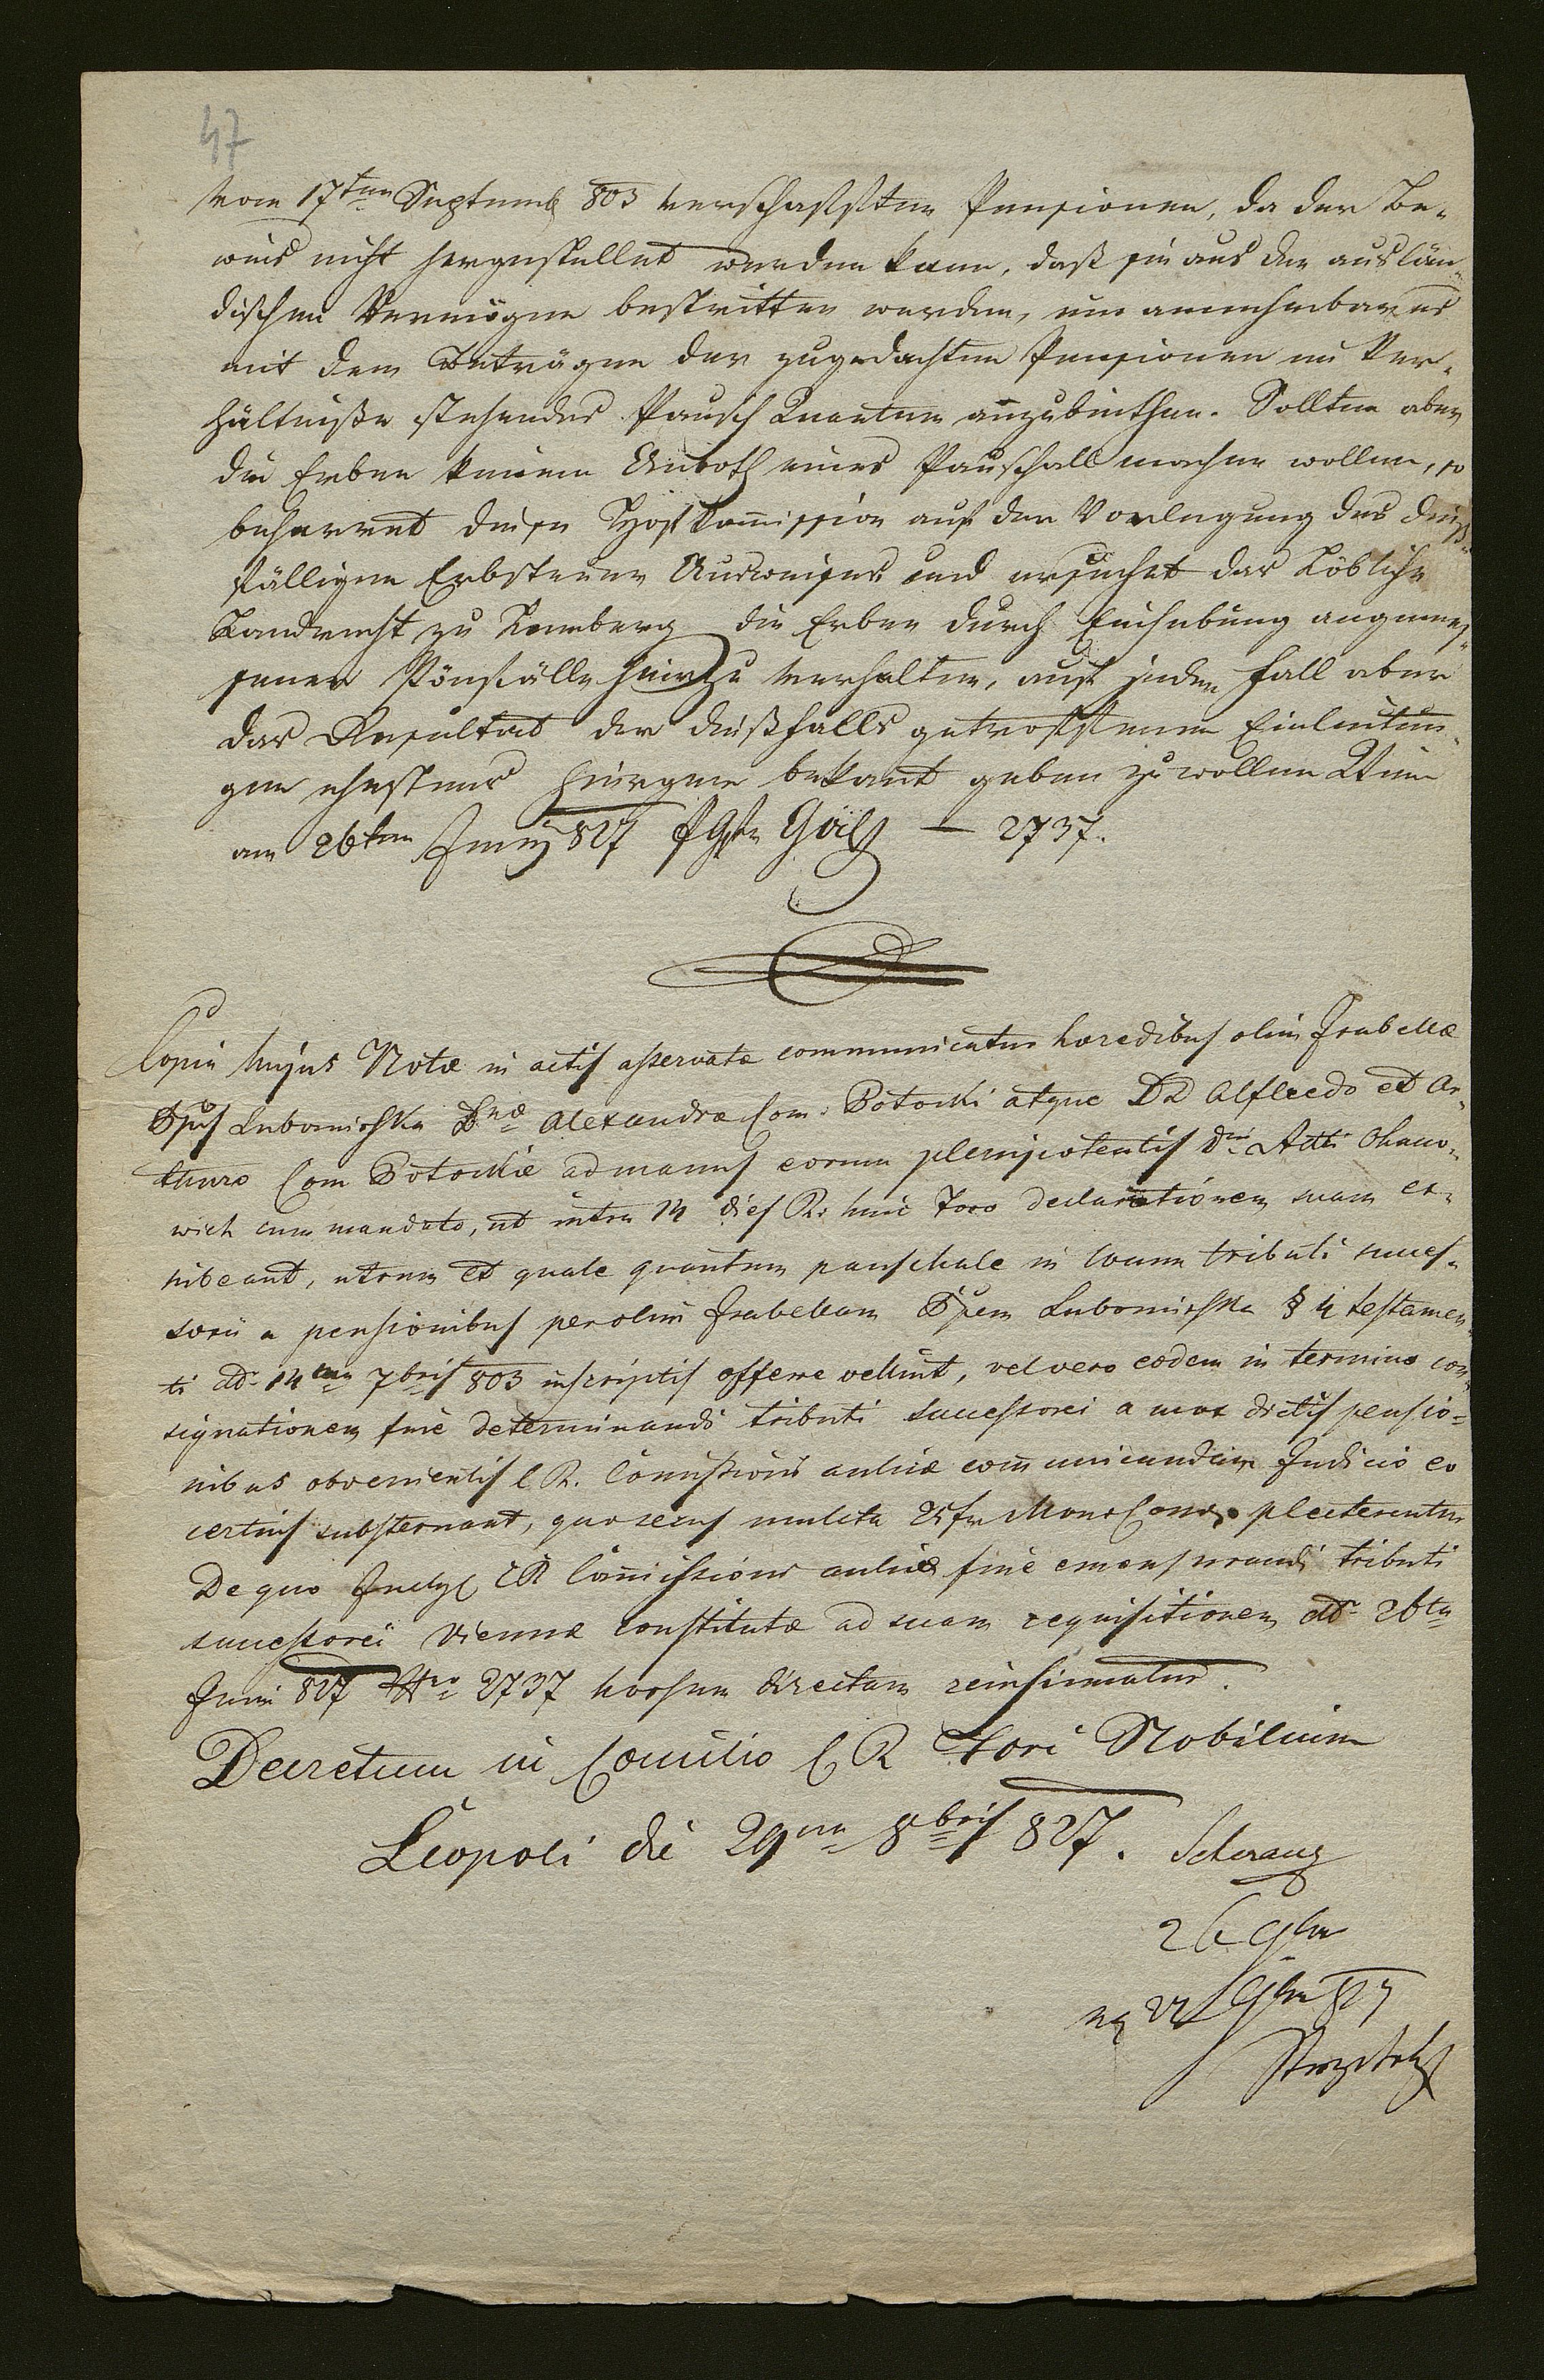 47
vom 17ten Septemb 803 verschafften Pensionen, da der Be-
weis nicht hergestellet werden kann, daß sie aus den auslän-
dischen Vermögen bestritten werden, ein annehmbares
mit dem Beträgen der zugedachten Pensionen im Ver-
hältniße stehendes Pausch Quantum anzubiethen. Sollten aber
die Erben keinen Anboth eines Pauschall machen wollen, so
beharret diese Hofkommission auf der Vorlegung des dieß-
fälligen Erbsteuer Ausweises und ersuchet das Löbliche
Landrecht zu Lemberg die Erben durch Einhebung angemes-
sener Pönfälle hiezu verhalten, auf jeden Fall aber
das Resultat der dießfalls getroffenen Einleitun-
gen ehestens hiergen bekant geben zu wollen Wien
am 26ten Juny 827 Göll — 2737.
Copia hujus Notæ in actis asservatæ communicatur hæredibus olim Isabellæ
Lubomirska Dnæ Alexandræ Com. Potocki atque DD Alfredo et Ar-
thuro Com Potockie ad manus eorum plenipotentis Dni Adti Ohano-
wich cum mandato, ut intra 14 dies R. huic Foro declarationem suam ex-
hibeant, utrum et quale quantum pauschale in locum tributi succes-
sorii a pensionibus per olim Isabellam Lubomirska § 4 testamen-
ti ddto 14ta 7bris 803 inscriptis offerre velint, vel vero eodem in termino con-
signationem fine determinandi tributi successorei a mox dictis pensio-
nibus obvenientis C.R. Commissioni aulicæ communicandam Judicio eo
certius substernant, quo secus mulcta 25 fr Mon Conv. plecterentur
De quo Inclyt CR Commissioni aulicæ fine emensurandi tributi
successorei Viennæ constitutæ ad suam requisitionem ddto 26ta
Juni 827 Nro 2737 horsum directam reinsinuatur.
Decretum in Consilio C R Fori Nobilium
Leopoli die 29na 8bris 827. Schranz
26 9br
22 9br 827